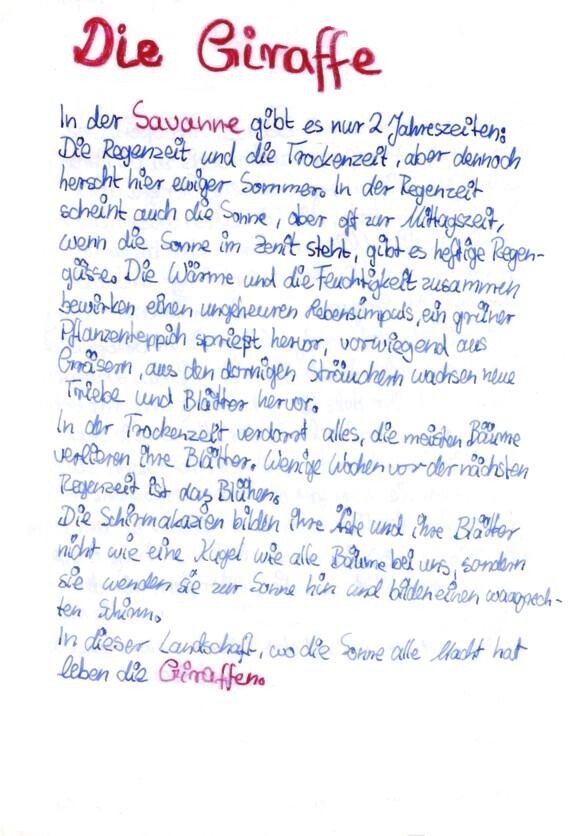 Die Giraffe
In der Savanne gibt es nur 2 Jahreszeiten:
Die Regenzeit und die Trockenzeit, aber dennoch
herscht hier ewiger Sommer. In der Regenzeit
scheint auch die Sonne, aber oft zur Mittagszeit,
wenn die Sonne im Zenit steht, gibt es heftige Regen-
güsse. Die Wärme und die Feuchtigkeit zusammen
bewirken einen ungeheuren Lebensimpuls, ein grüner
Pflanzenteppich sprießt hervor, vorwiegend aus
Gräsern, aus den dornigen Sträuchern wachsen neue
Triebe und Blätter hervor.
In der Trockenzeit verdorrt alles, die meisten Bäume
verlieren ihre Blätter. Wenige Wochen vor der nächsten
Regenzeit ist das Blühen.
Die Schirmakazien bilden ihre Äste und ihre Blätter
nicht wie eine Kugel wie alle Bäume bei uns, sondern
sie wenden sie zur Sonne hin und bilden einen waagrech-
ten Schirm.
In dieser Landschaft, wo die Sonne alle Macht hat
leben die Giraffen.